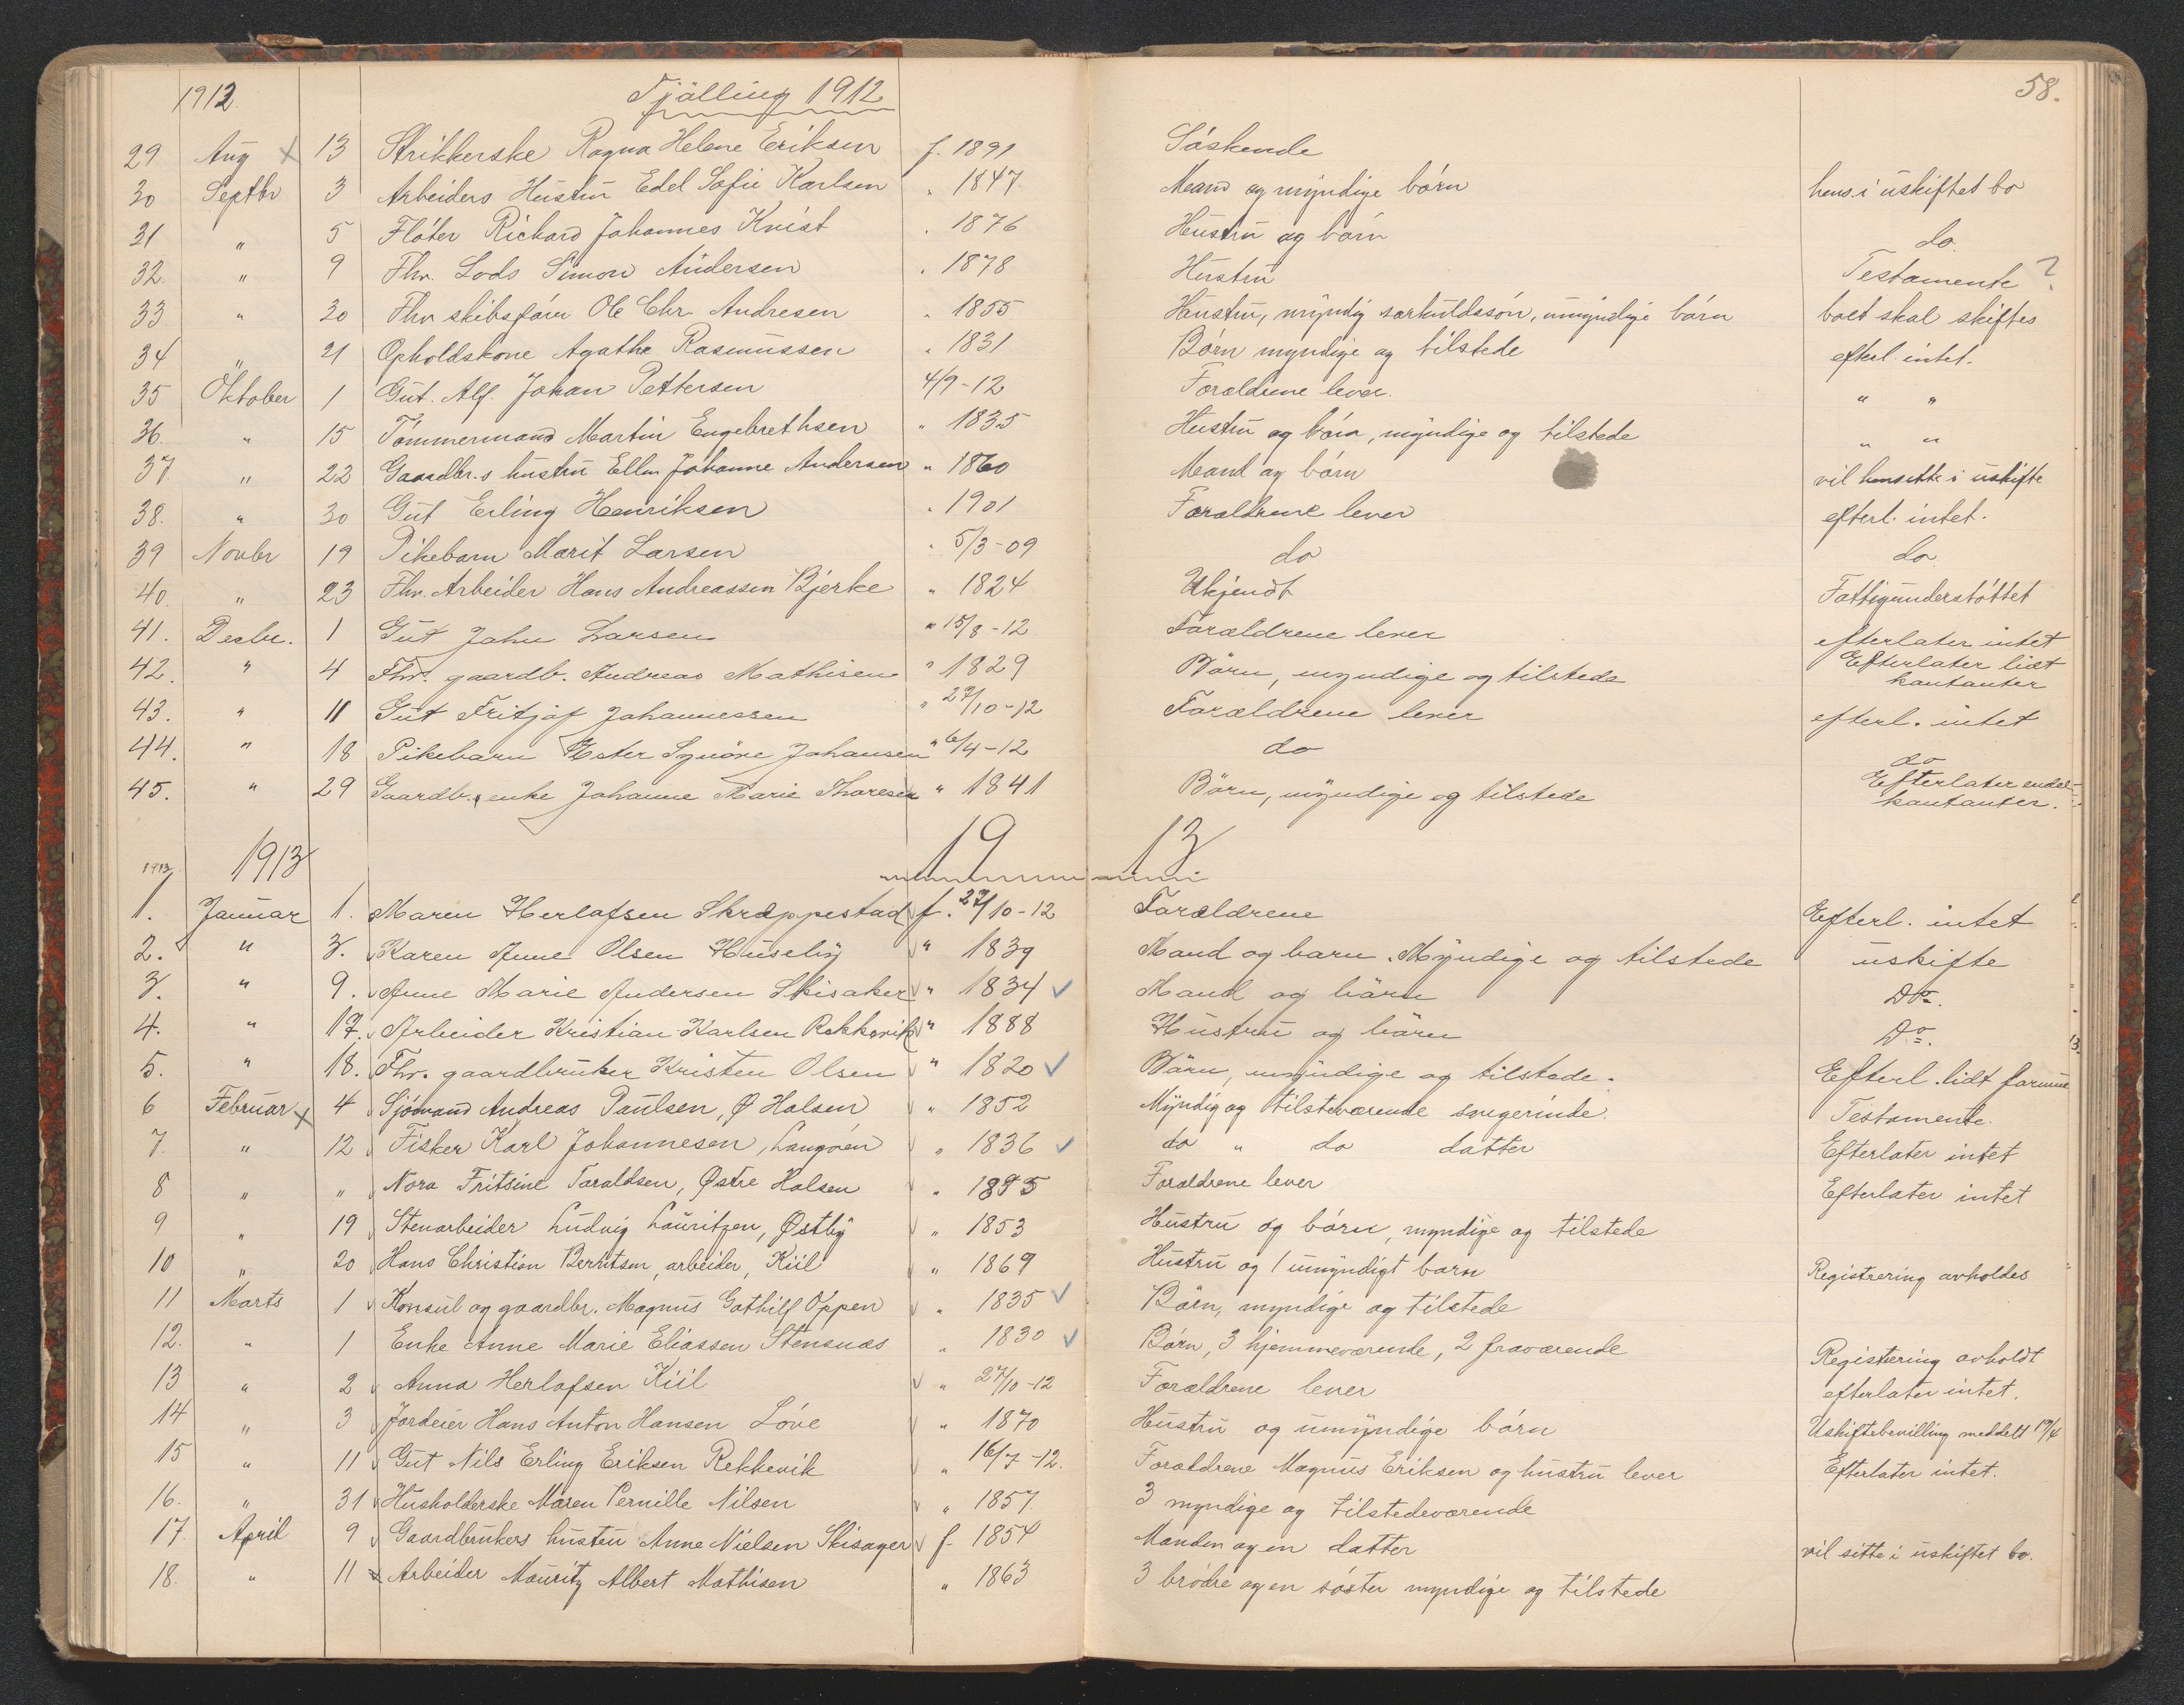 1912 Tjølling 1912 58.
29 Aug x 13 Strikkerske Ragna Helene Eriksen f. 1891 Søskende
30 Septbr 3 Arbeiders Hustru Edel Sofie Karlsen " 1847. Mand og myndige børn hens. i uskiftet bo
31 " 5 Fløter Richard Johannes Kvist " 1876 Hustru og børn do.
32. " 9 Fhv. Lods Simon Andersen " 1878 Hustru Testamente ?
33 " 20 Fhv skibsfører Ole Chr Andresen " 1855 Hustru, myndig særkuldssøn, umyndige børn boet skal skiftes
34 " 21 Opholdskone Agathe Rasmussen " 1831 Børn myndige og tilstede efterl. intet.
35 Oktober 1 Gut. Alf. Johan Pettersen 4/9-12 Forældrene lever. " "
36. " 15 Tømmermand Martin Engebrethsen " 1835 Hustru og børn, myndige og tilstede " "
37. " 22 Gaardbr.s hustru Ellen Johanne Andersen " 1860 Mand og børn vil hensitte i uskifte
38. " 30 Gut Erling Henriksen " 1901 Forældrene lever efterl. intet.
39 Novbr 19 Pikebarn Marit Larsen " 5/3-09 do do
40. " 23 Fhv. Arbeider Hans Andreassen Bjerke " 1824 Ukjendt Fattigunderstøttet
41. Decbr. 1 Gut John Larsen " 15/8-12 Forældrene lever efterlater intet
42. " 4 Fhv. gaardb. Andreas Mathisen " 1829 Børn, myndige og tilstede Efterlater lidt kontanter
43. " 11 Gut Fritjof Johannessen " 27/10-12 Forældrene lever efterl. intet
44. " 18 Pikebarn Ester Synøve Johansen " 6/4-12 do do
45. " 29 Gaardb. enke Johanne Marie Thoresen " 1841 Børn, myndige og tilstede Efterlater endel kontanter.
1913 1913 19 13
1. Januar 1. Maren Herlofsen Skræppestad f. 27/10-12 Forældrene Efterl. intet
2. " 3. Karen Anne Olsen Huseby " 1839 Mand og barn. Myndige og tilstede uskifte
3. " 9. Anne Marie Andersen Skisaker " 1834 Mand og børn Do.
4. " 17. Arbeider Kristian Karlsen Rekkevik " 1888 Hustru og børn Do.
5. " 18. Fhv. gaardbruker Kristen Olsen " 1820 Børn, myndige og tilstede. Efterl. lidt formue
6 Februar x 4 Sjømand Andreas Paulsen, Ø Halsen " 1852 Myndig og tilstedeværende svigerinde. Testamente.
7. " 12 Fisker Karl Johannesen, Langøen " 1836 do " do datter Efterlater intet
8 " " Nora Fritsine Taraldsen, Østre Halsen " 1895 Forældrene lever Efterlater intet
9 " 19 Stenarbeider Ludvig Lauritzen, Østby " 1853 Hustru og børn, myndige og tilstede
10 " 20 Hans Christian Berntsen, arbeider, Kiil " 1869 Hustru og 1 umyndigt barn Registrering avholdes
11 Marts 1 Konsul og gaardbr. Magnus Gothilf Oppen " 1835 Børn, myndige og tilstede
12. " 1 Enke Anne Marie Eliassen Stensnæs " 1830 Børn, 3 hjemmeværende, 2 fraværende Registrering avholdt
13 " 2 Anna Herlofsen Kiil " 27/10-12 Forældrene lever efterlater intet.
14 " 3 Jordeier Hans Anton Hansen Løve " 1870 Hustru og umyndige børn Uskiftebevilling meddelt 19/4
15 " 11 Gut Nils Erling Eriksen Rekkevik " 16/7-12. Forældrene Magnus Eriksen og hustru lever Efterlater intet.
16. " 31 Husholderske Maren Pernille Nilsen " 1857 3 myndige og tilstedeværende
17. April 9 Gaardbrukers hustru Anne Nielsen Skisager f. 1854 Manden og en datter vil sitte i uskiftet bo.
18. " 11 Arbeider Mauritz Albert Mathisen " 1863 3 brødre og en søster myndige og tilstede